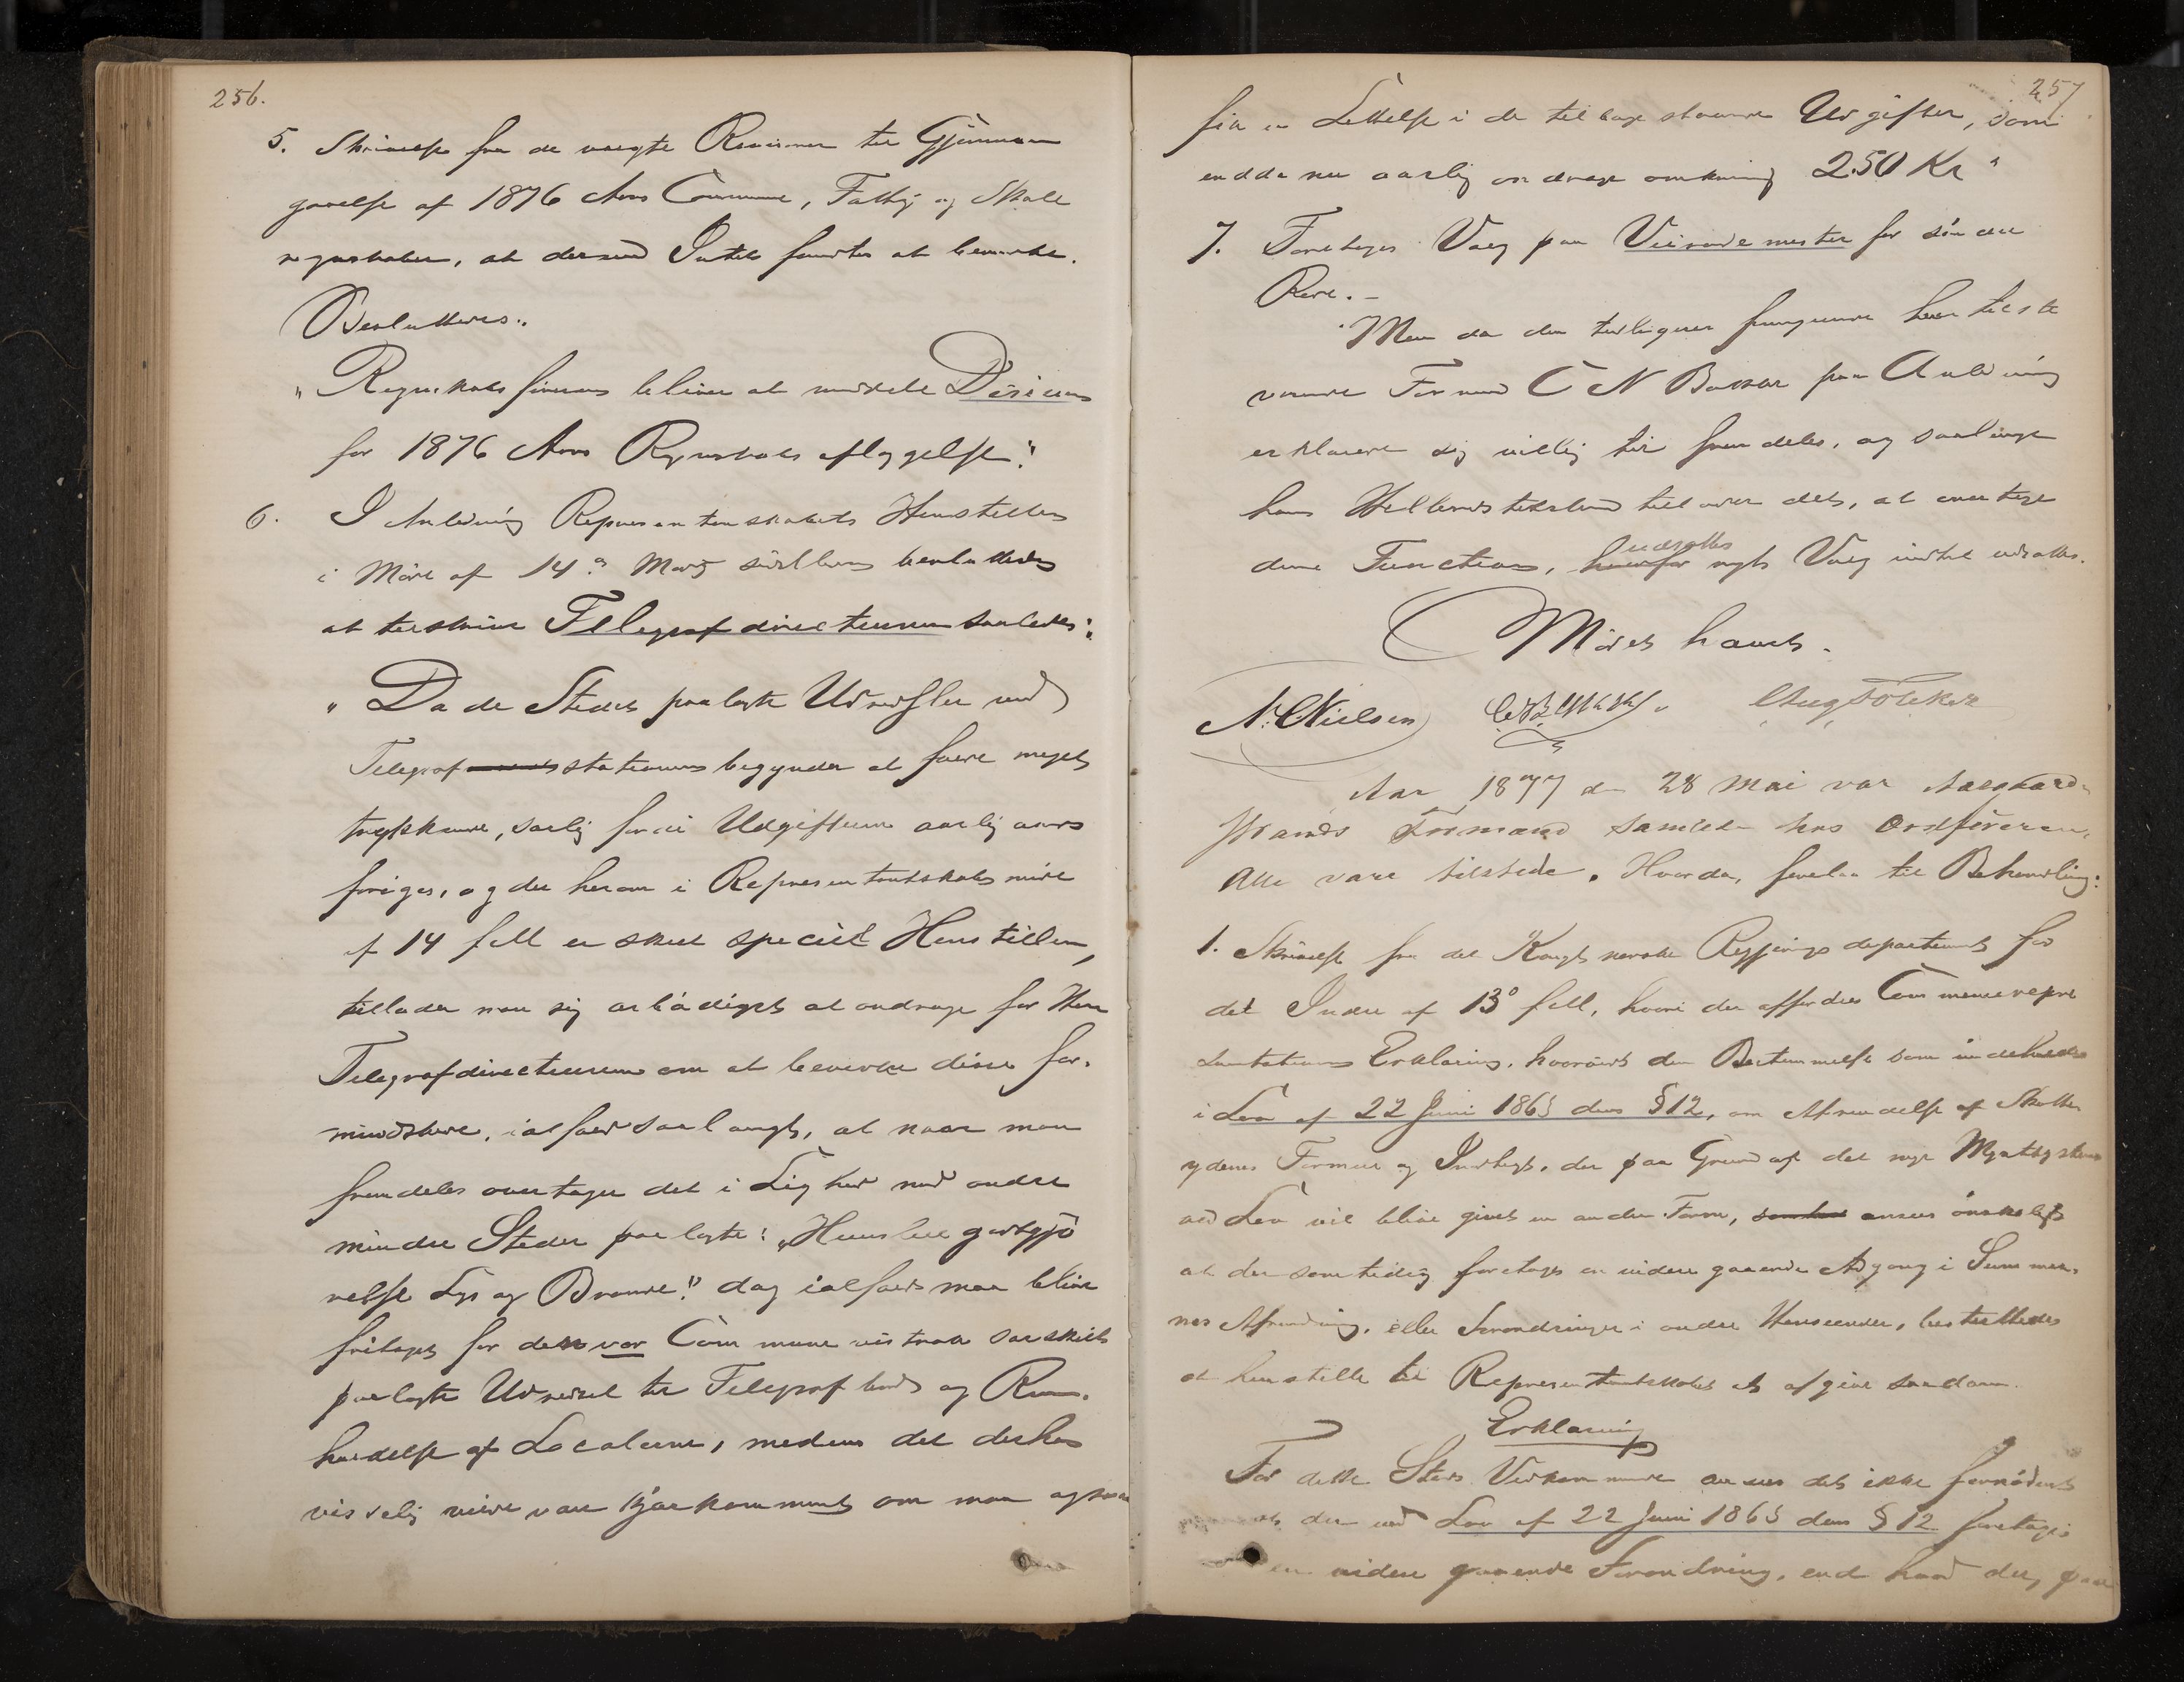 256.
5. Skrivelse fra de valgte Revisorer til Gjennem
gaaelse af 1876 Aars Commune, Fattig og Skole
regnskaber, at derved Intet fandtes at bemærke.
Besluttedes:
"Regnskabsføreren bliver at meddele Decision
for 1876 Aars Regnskabs aflæggelse."
6. I Anledning Representantskabets Henstillen
i Möde af 14de Marts sidstleden besluttedes
at tilskrive Telegrafdirecteuren saaledes:
"Da de Stedet paalagte Udredsler ved
Telegraf stationen begynder at falde meget
trykkende, særlig fordi Udgifterne aarlig aars
foröges, og der herom i Representantskabs möde
af 14 f. M. er skeet speciel Henstillen,
tillader man sig ærbödigst at andrage for Herr
Telegrafdirecteuren om at bevirke disse for-
mindskede, ialfald saalangt, at naar man
fremdeles overtager det i Lighed med andre
mindre Steder paalagte: "Huusleie godtgjö
relse Lys og Brænde" dog ialfald maa blive
fritaget for den vor Commune særskilt
paalagte Udredsel til Telegraf bud og Ren-
holdelse af Localerne, medens det derhos
visselig vilde være kjærkomment om man ogsaa
257
fik en Lettelse i de tilbage staaende Udgifter, som
endda nu aarlig andrage omkring 250 Kr"
7. Foretages Valg paa Veirodemester for söndre
Rode.-
Men da den tidligere fungerende her tilste
værende Formand C N Bassøe paa Anledning
erklærede sig villig til fremdeles, og saalænge
hans Helbredstilstand tillader det, at overtage
denne Function, udsattes nyt Valg indtil udsattes.
Mödet hævet.
N. Nielsen Aug Fölcker
Aar 1877 den 28 Mai var Aasgaard-
strands Formænd samlede hos Ordföreren.
Alle vare tilstede. Hvorda, forelaa til Behandling:
1. Skrivelse fra det Kongl norske Regjerings departement for
det Indre af 13de f. M., hvori der affordres Communerepre
sentationens Erklæring, hvorvidt den Bestemmelse som indeholdes
i Lov af 22 Juni 1863 dens §12, om Afrundelse af Skatte
ydernes Formue og Indtægt, der paa Grund af det nye Myntsystem
ved Lov vil blive givet en anden Form, ansees önskeligt
at der samtidig foretages en videre gaaende Adgang i Summer-
nes Afrunding, eller Forandringer i andre Henseender, besluttedes
at henstille til Representantskabet at afgive saadan
Erklæring
For dette Steds Vedkommende ansees det ikke fornödent
at der ved Lov af 22 Juni 1863 dens §12 foretages
en videre gaaende Forandring, end hvad der, paa